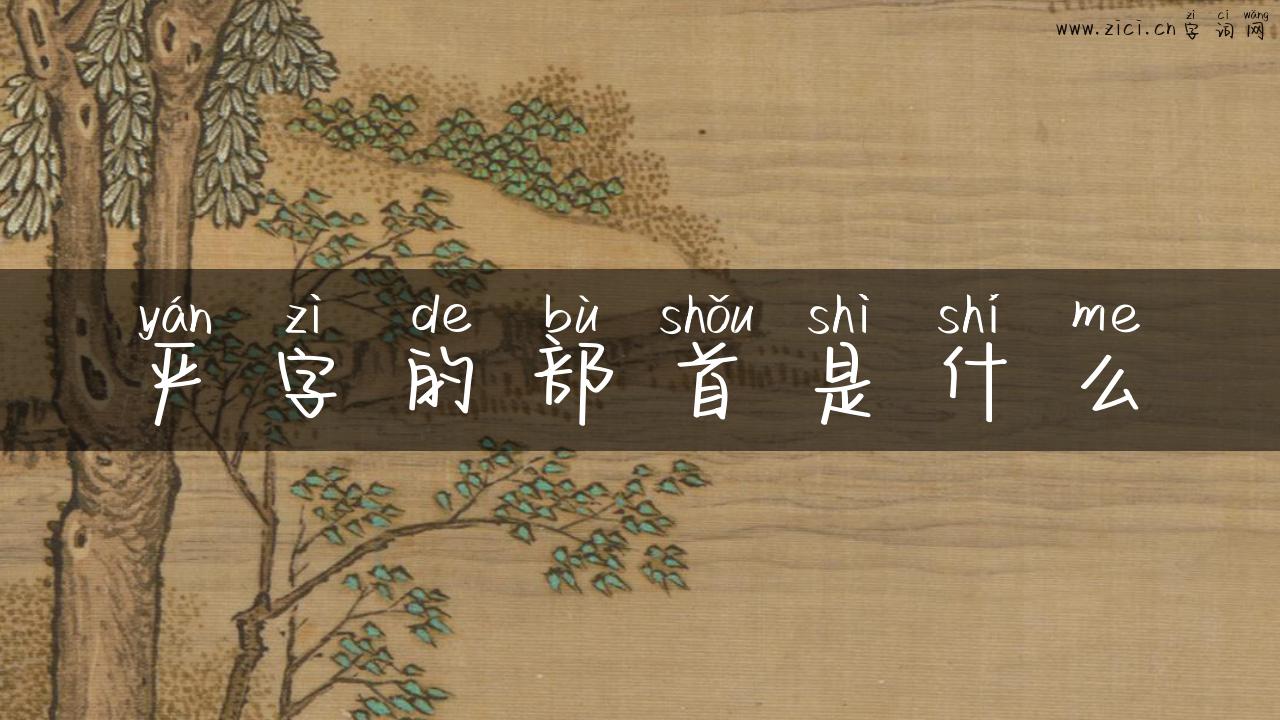 zì cí wǎng
www.zici.cn 字词网
yán zì de bù shǒu shì shí me
严字的部首是什么